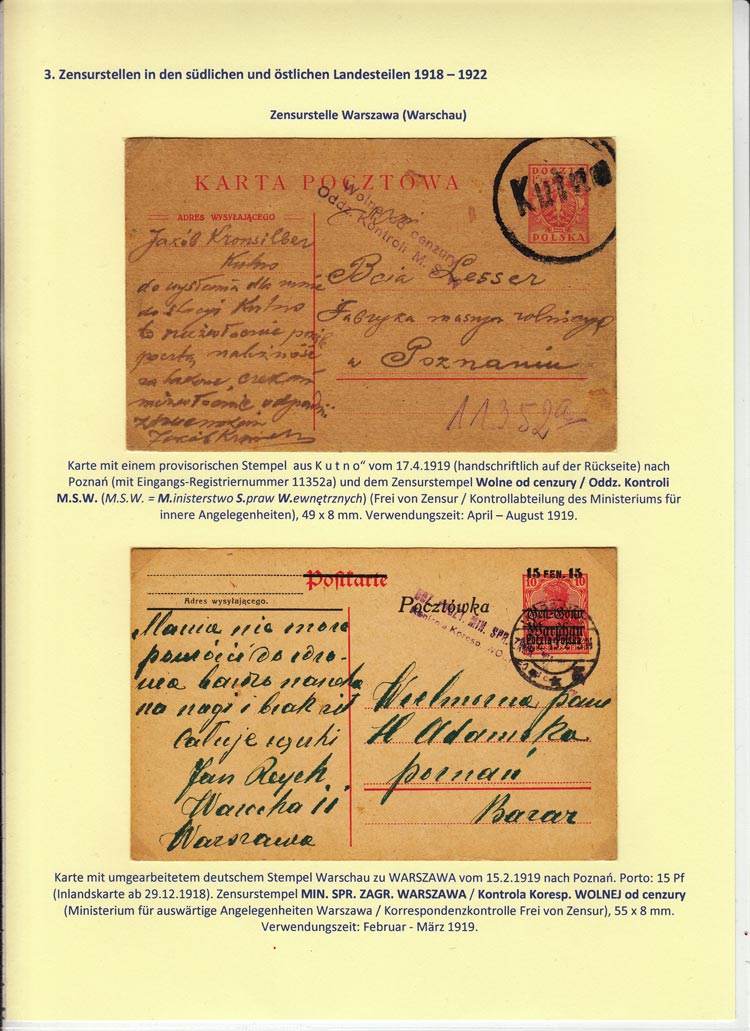 3. Zensurstellen in den südlichen und östlichen Landesteilen 1918 – 1922
Zensurstelle Warszawa (Warschau)
KARTA POCZTOWA
ADRES WYSYŁAJĄCEGO
Wolne od cenzury
Oddz. Kontroli M. S. W.
POCZTA
POLSKA
Kutno
Jakób Kronsilber
Kutno
do wysłania dla mnie
do stacji Kutno
pocztą należność
Bcia Lesser
Fabryka maszyn rolniczych
w Poznaniu
11352a
Karte mit einem provisorischen Stempel aus K u t n o“ vom 17.4.1919 (handschriftlich auf der Rückseite) nach
Poznań (mit Eingangs-Registriernummer 11352a) und dem Zensurstempel Wolne od cenzury / Oddz. Kontroli
M.S.W. (M.S.W. = M.inisterstwo S.praw W.ewnętrznych) (Frei von Zensur / Kontrollabteilung des Ministeriums für
innere Angelegenheiten), 49 x 8 mm. Verwendungszeit: April – August 1919.
Postkarte
Adres wysyłającego.
Pocztówka
15 FEN. 15
10 10
Gen.-Gouv.
Warschau
Poczta Polska
MIN. SPR.
Kontrola Koresp.
Mania nie może
pomóc do zdro-
wia bardzo
na nogi i brak sił
Całuję rączki
Jan
Warecka 11
Warszawa
Wielmożna pani
H Adamska
poznań
Bazar
Karte mit umgearbeitetem deutschem Stempel Warschau zu WARSZAWA vom 15.2.1919 nach Poznań. Porto: 15 Pf
(Inlandskarte ab 29.12.1918). Zensurstempel MIN. SPR. ZAGR. WARSZAWA / Kontrola Koresp. WOLNEJ od cenzury
(Ministerium für auswärtige Angelegenheiten Warszawa / Korrespondenzkontrolle Frei von Zensur), 55 x 8 mm.
Verwendungszeit: Februar - März 1919.